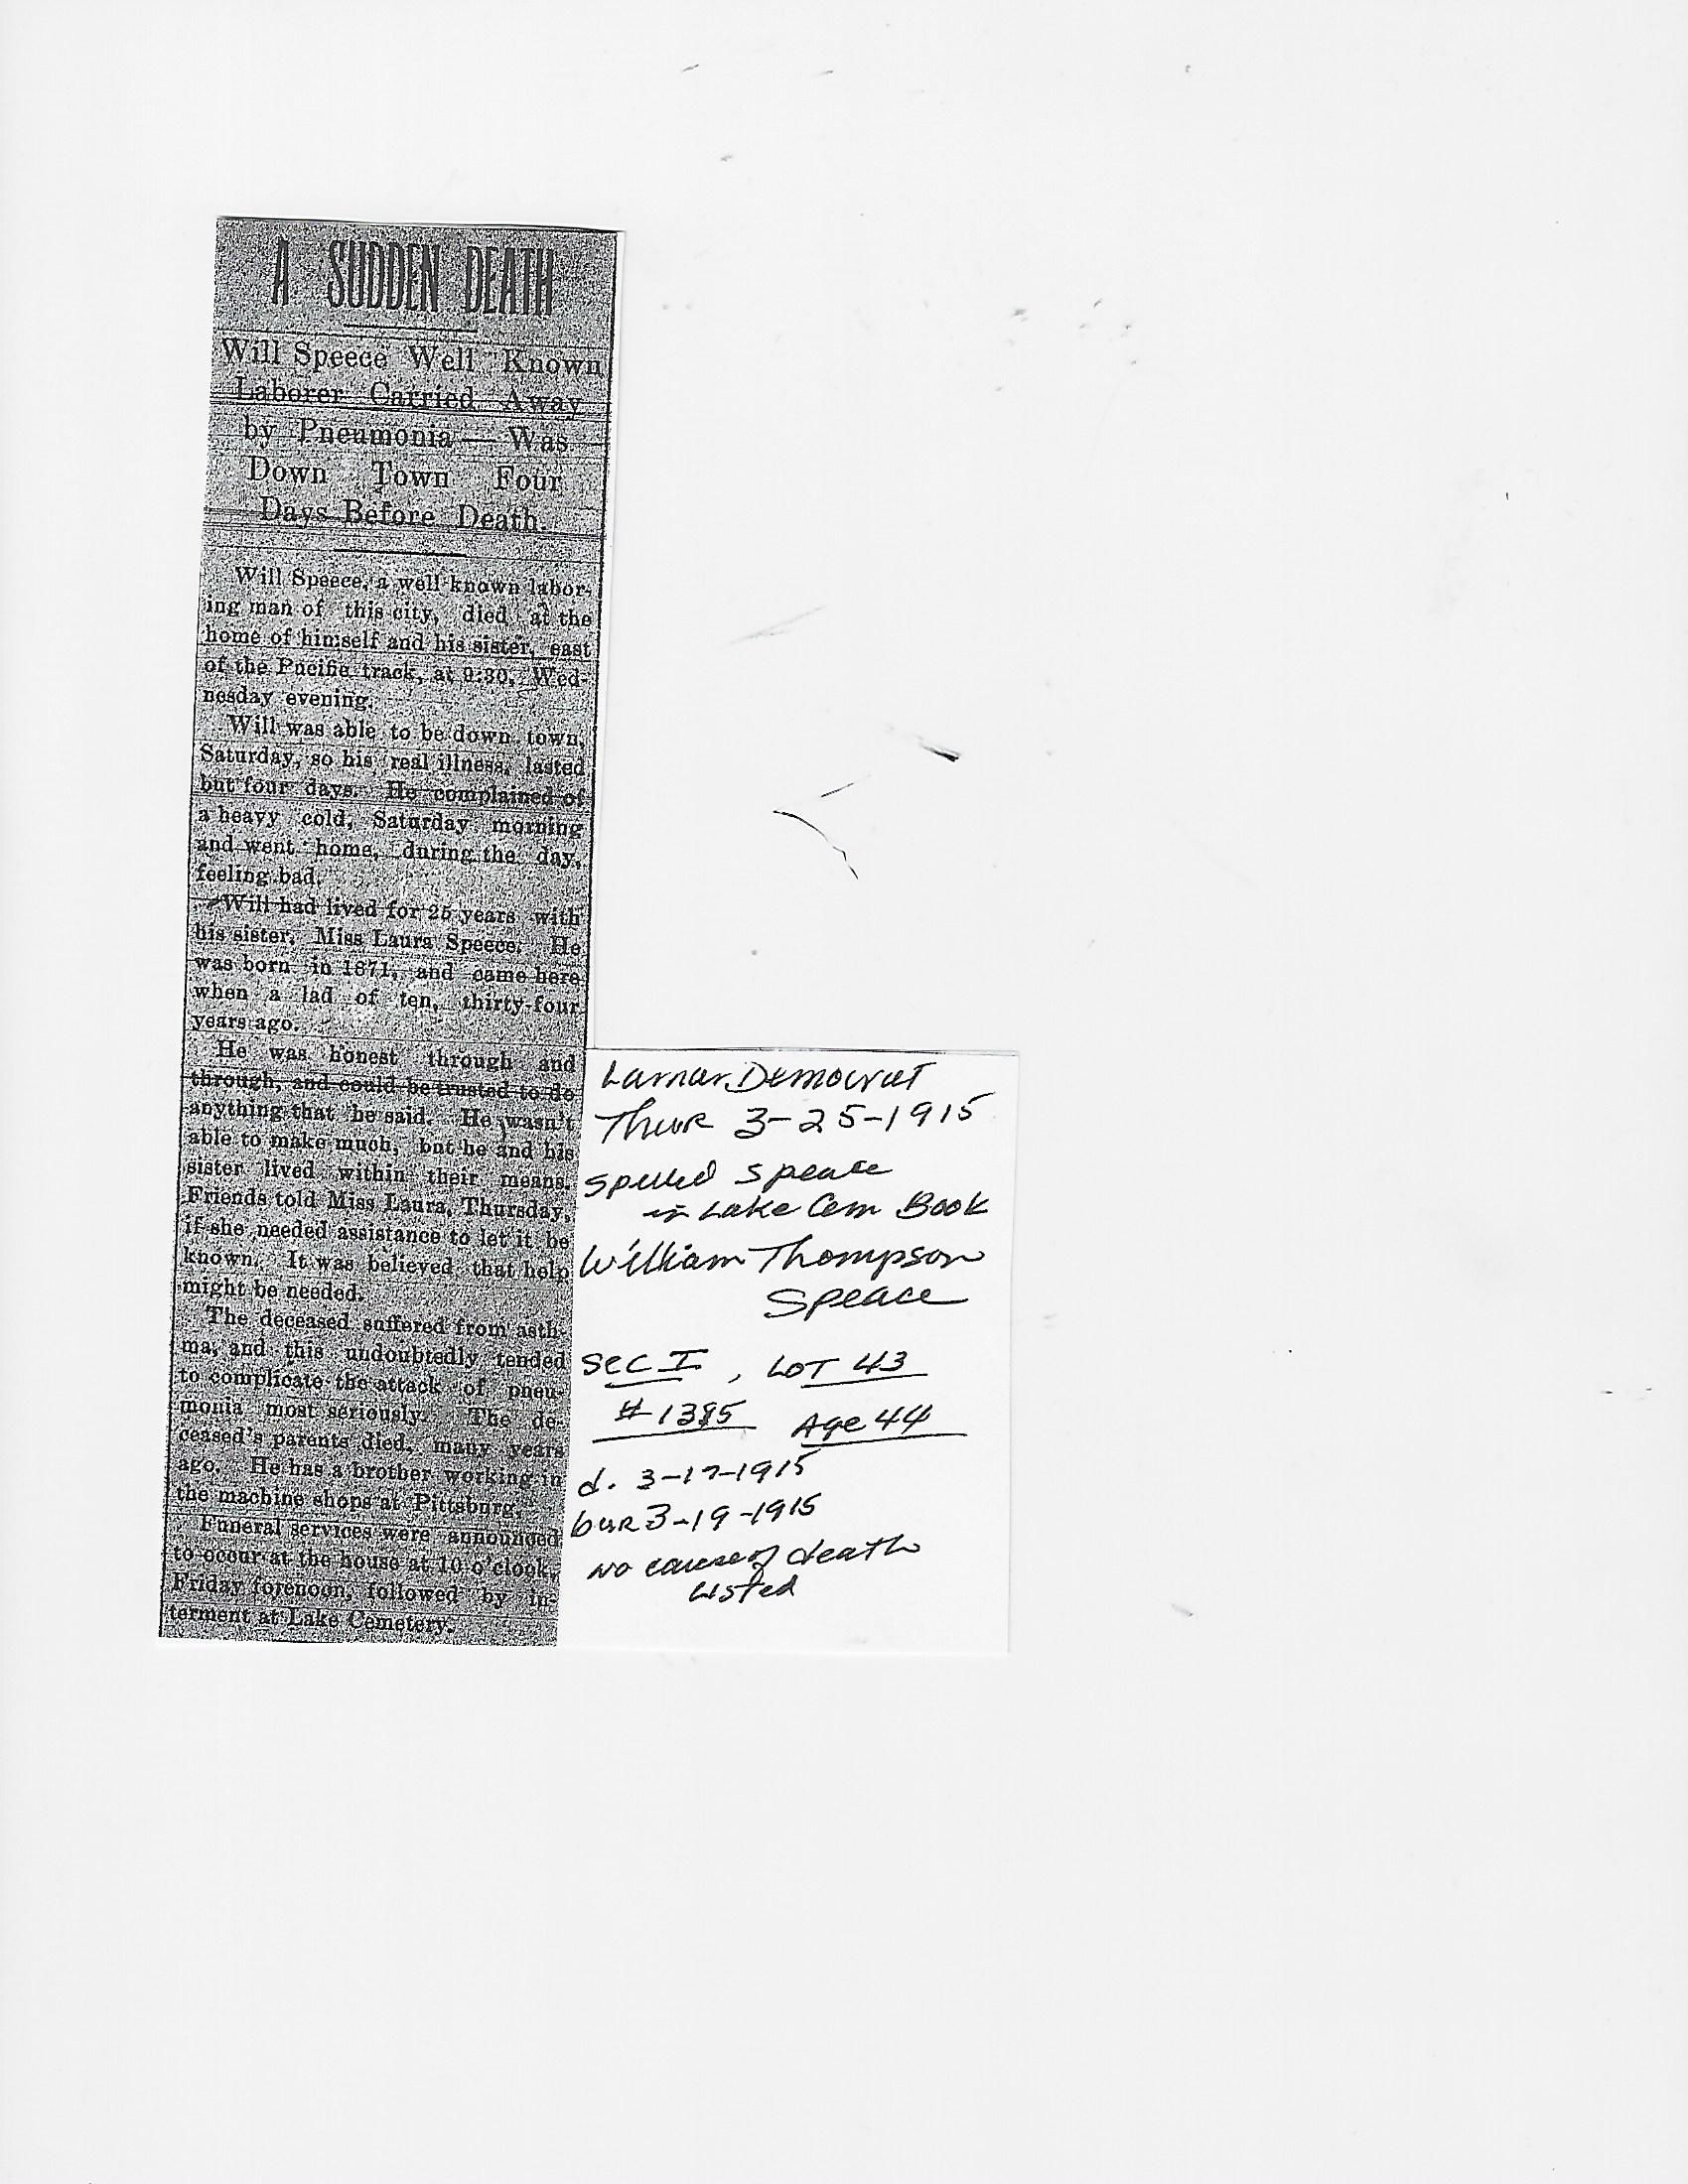 A SUDDEN DEATH
Will Speece Well Known
Laborer Carried Away
by Pneumonia — Was
Down Town Four
Days Before Death.
Will Speece, a well known labor-
ing man of this city, died at the
home of himself and his sister, east
of the Pacific track, at 9:30, Wed-
nesday evening.
Will was able to be down town,
Saturday, so his real illness, lasted
but four days. He complained of
a heavy cold, Saturday morning
and went home, during the day,
feeling bad.
Will had lived for 25 years with
his sister, Miss Laura Speece. He
was born in 1871, and came here
when a lad of ten, thirty-four
years ago.
He was honest through and
through, and could be trusted to do
anything that he said. He wasn't
able to make much, but he and his
sister lived within their means.
Friends told Miss Laura, Thursday,
if she needed assistance to let it be
known. It was believed that help
might be needed.
The deceased suffered from asth-
ma, and this undoubtedly tended
to complicate the attack of pneu-
monia most seriously. The de-
ceased's parents died, many years
ago. He has a brother working in
the machine shops at Pittsburg.
Funeral services were announced
to occur at the house at 10 o'clock,
Friday forenoon, followed by in-
terment at Lake Cemetery.
Lamar Democrat
Thur 3-25-1915
spelled Speace
in Lake Cem Book
William Thompson
Speace
Sec I, LOT 43
#1385 Age 44
d. 3-17-1915
bur 3-19-1915
No cause of death
listed